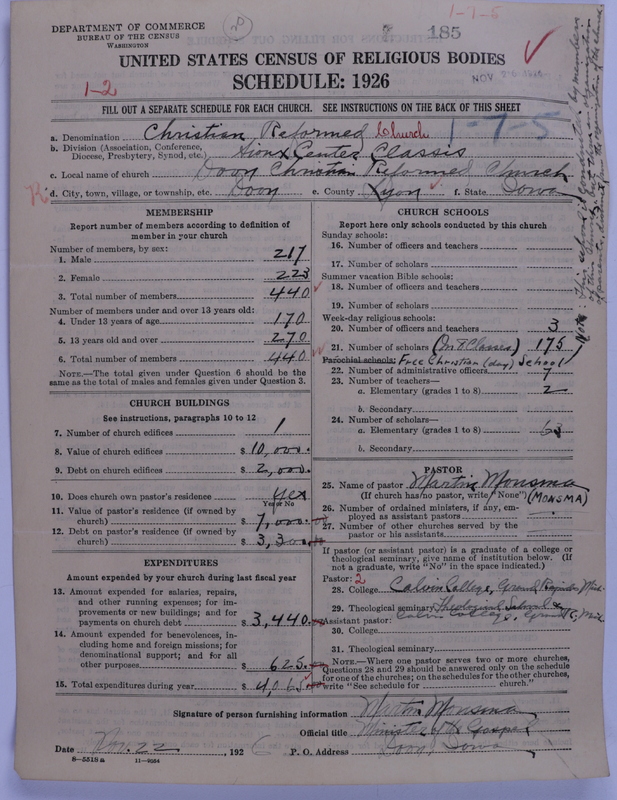 1-7-5
DEPARTMENT OF COMMERCE
BUREAU OF THE CENSUS
WASHINGTON
185
UNITED STATES CENSUS OF RELIGIOUS BODIES
SCHEDULE: 1926
NOV 26 1926
1-2
FILL OUT A SEPARATE SCHEDULE FOR EACH CHURCH. SEE INSTRUCTIONS ON THE BACK OF THIS SHEET
a. Denomination Christian Reformed Church 1-7-5
b. Division (Association, Conference, Diocese, Presbytery, Synod, etc.) Sioux Center Classis
c. Local name of church Doon Christian Reformed Church
d. City, town, village, or township, etc. Doon e. County Lyon f. State Iowa
MEMBERSHIP
Report number of members according to definition of member in your church
Number of members, by sex:
1. Male 217
2. Female 223
3. Total number of members 440
Number of members under and over 13 years old:
4. Under 13 years of age 170
5. 13 years old and over 270
6. Total number of members 440
NOTE.—The total given under Question 6 should be the same as the total of males and females given under Question 3.
CHURCH BUILDINGS
See instructions, paragraphs 10 to 12
7. Number of church edifices 1
8. Value of church edifices $ 10,000.
9. Debt on church edifices $ 2,000.
10. Does church own pastor's residence Yes
Yes or No
11. Value of pastor's residence (if owned by church) $ 7,000.
12. Debt on pastor's residence (if owned by church) $ 3,300
EXPENDITURES
Amount expended by your church during last fiscal year
13. Amount expended for salaries, repairs, and other running expenses; for improvements or new buildings; and for payments on church debt $ 3,440.
14. Amount expended for benevolences, including home and foreign missions; for denominational support; and for all other purposes $ 625.
15. Total expenditures during year $ 4,065
CHURCH SCHOOLS
Report here only schools conducted by this church
Sunday schools:
16. Number of officers and teachers
17. Number of scholars
Summer vacation Bible schools:
18. Number of officers and teachers
19. Number of scholars
Week-day religious schools:
20. Number of officers and teachers 3
21. Number of scholars 175
Parochial schools: Free Christian (day) School
22. Number of administrative officers 7
23. Number of teachers—
a. Elementary (grades 1 to 8) 2
b. Secondary
24. Number of scholars—
a. Elementary (grades 1 to 8) 63
b. Secondary
PASTOR
25. Name of pastor Martin Monsma
(If church has no pastor, write "None") (MONSMA)
26. Number of ordained ministers, if any, employed as assistant pastors
27. Number of other churches served by the pastor or his assistants
If pastor (or assistant pastor) is a graduate of a college or theological seminary, give name of institution below. (If not a graduate, write "No" in the space indicated.)
Pastor: 2
28. College Calvin College, Grand Rapids Mich
29. Theological seminary Theological School &
Calvin College, Grand R. Mich.
Assistant pastor:
30. College
31. Theological seminary
NOTE.—Where one pastor serves two or more churches, Questions 28 and 29 should be answered only on the schedule for one of the churches; on the schedules for the other churches, write "See schedule for church."
Signature of person furnishing information Martin Monsma
Official title Minister of the Gospel
Date Nov. 22 1926 P. O. Address Doon, Iowa
8—5518a 11—9064